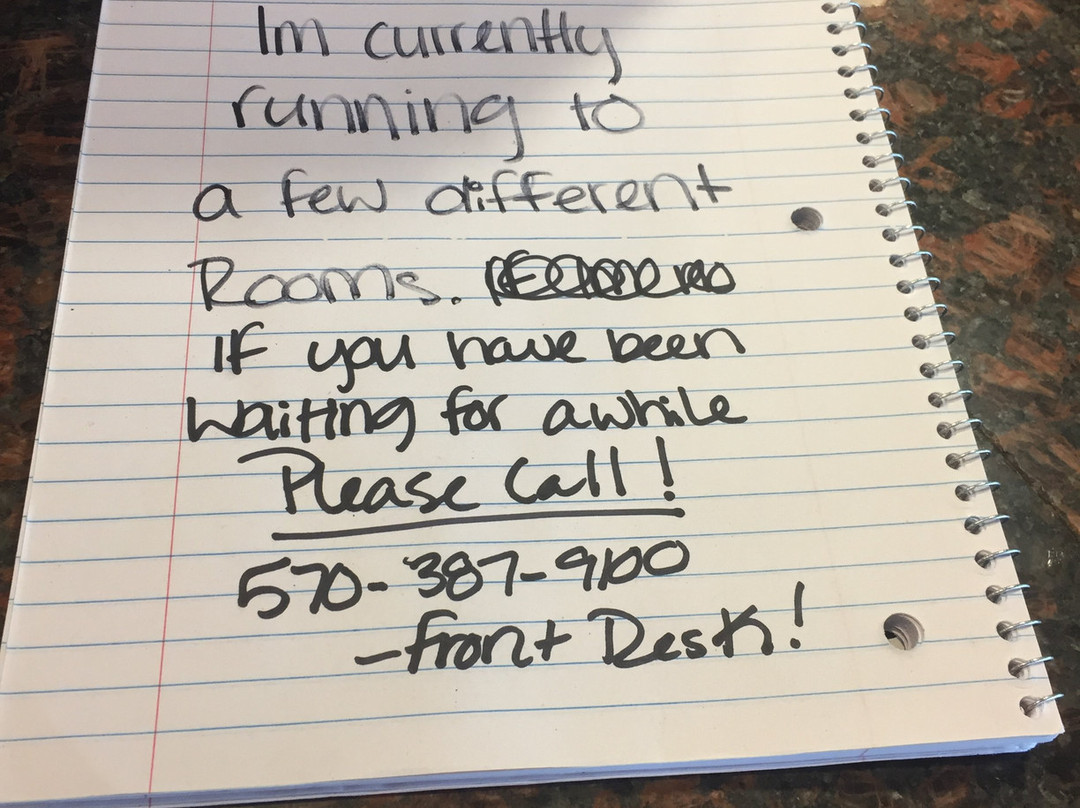 Im currently
running to
a few different
Rooms.
If you have been
waiting for awhile
Please Call!
570-387-9100
-front Desk!